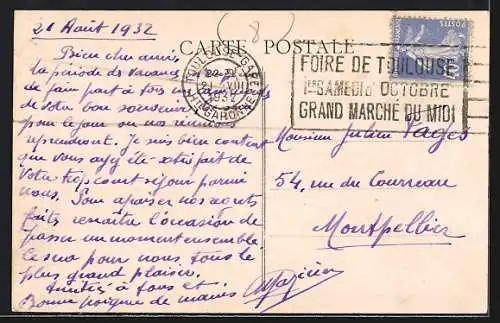 21 Août 1932
CARTE POSTALE
Bien cher ami,
La période de vacances
de faire part à fois
de votre bon souvenir
pour le jour où nos
reprendront. Je suis bien content
que vous ayez été satisfait de
votre trop court séjour parmi
nous. Pour apaiser nos regrets
faites renaître l'occasion de
passer un moment ensemble
le sera pour nous tous le
plus grand plaisir.
Amitiés à tous et
Bonne poignée de mains
TOULOUSE GARE
21 VIII
1932
HTE GARONNE
FOIRE DE TOULOUSE
1ER SAMEDI D'OCTOBRE
GRAND MARCHÉ DU MIDI
Monsieur Julien Pagès
54, rue du Courreau
Montpellier